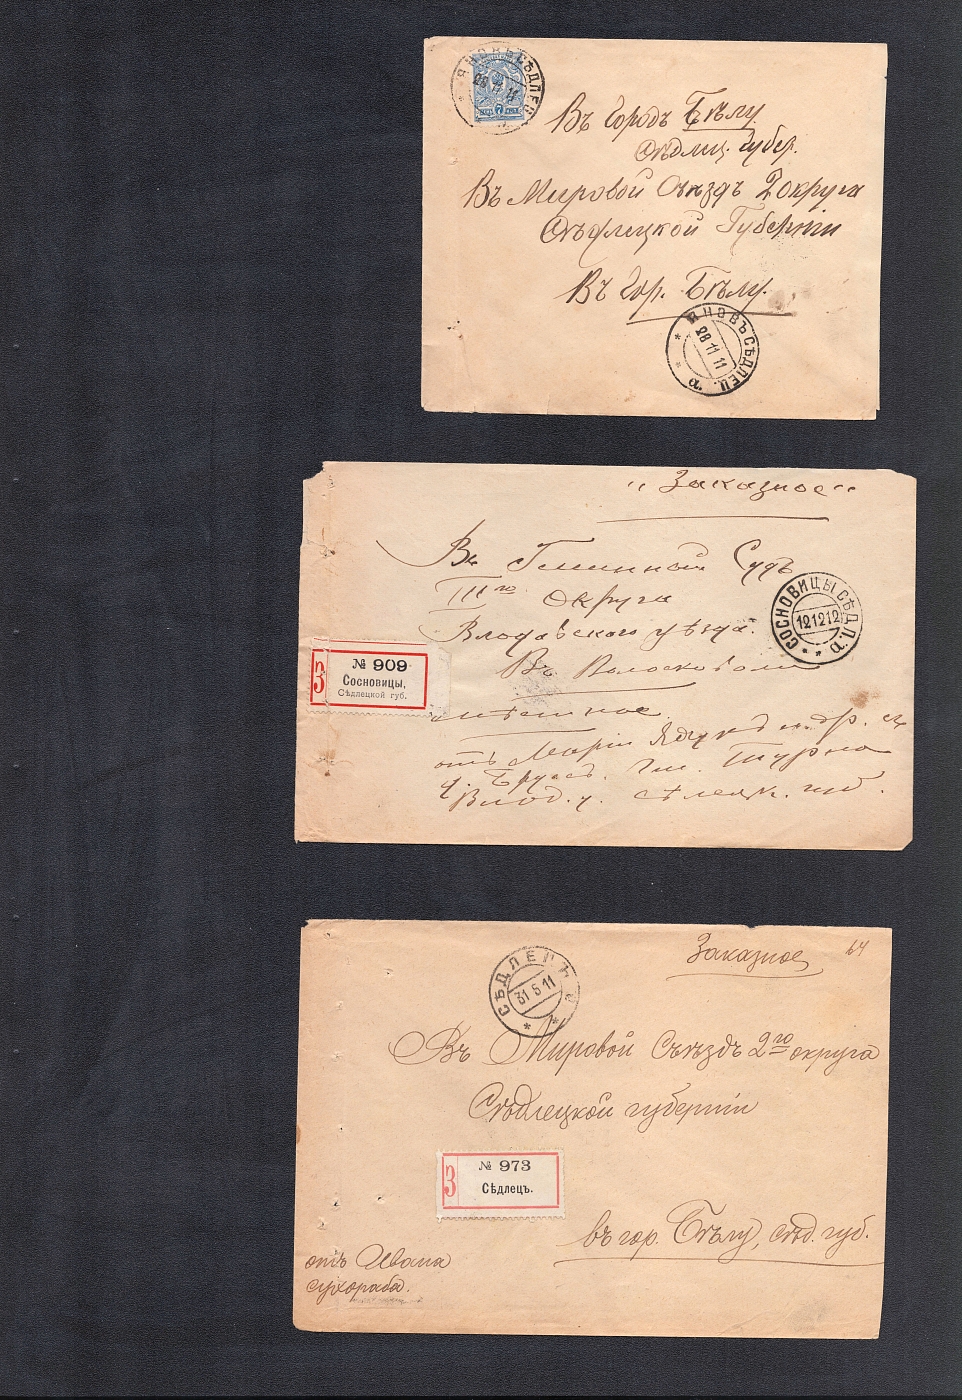 ЯНОВЪ СѢДЛЕЦ.
28 11 11
Въ Городъ Бѣлу
Сѣдлиц. Губер.
Въ Мировой Съѣздъ 2 округа
Сѣдлецкой Губерніи
Въ Гор. Бѣлу.
ЯНОВЪ СѢДЛЕЦ. Г.
28 11 11
„Заказное“
Въ Гминный Судъ
III го округа
Влодавскаго уѣзда.
Въ
СОСНОВИЦЫ СѢДЛ. Г.
12 12 12
З
№ 909
Сосновицы,
Сѣдлецкой губ.
отъ Маріи
Влод. у.
Заказное
64
СѢДЛЕЦЪ
31 5 11
Въ Мировой Съѣздъ 2го округа
Сѣдлецкой губерніи
З
№ 973
Сѣдлецъ.
въ гор. Бѣлу, сѣд. губ.
отъ Ивана
Сухораба.